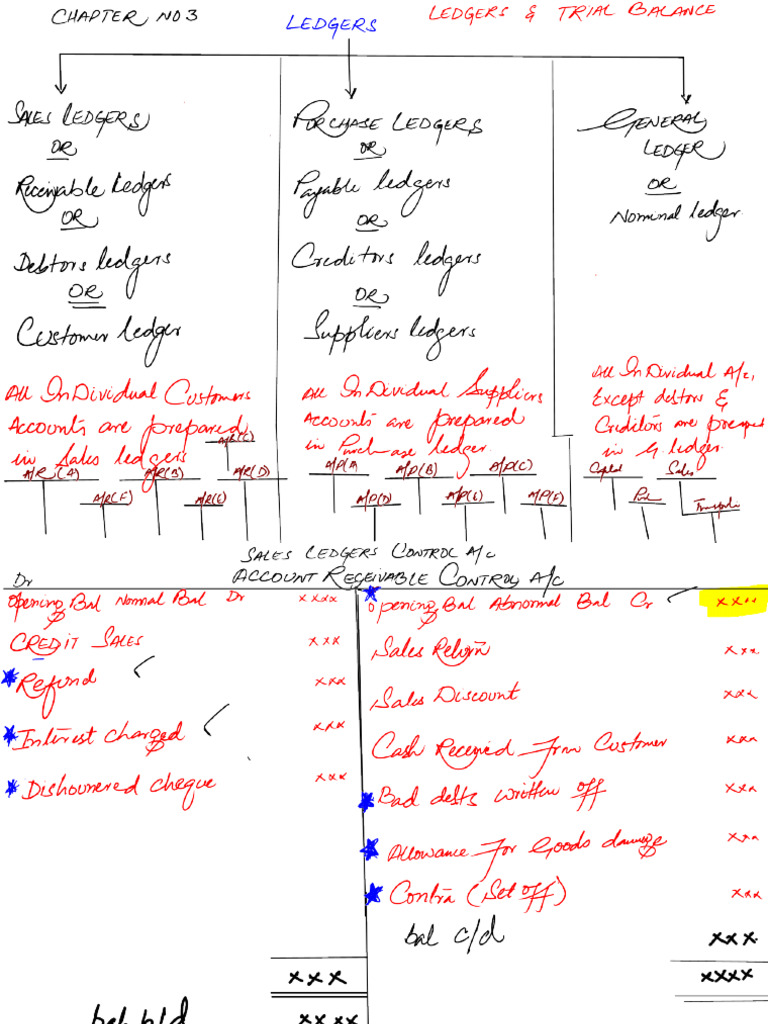 CHAPTER NO 3
LEDGERS
LEDGERS & TRIAL BALANCE
SALES LEDGERS
OR
Receivable Ledgers
OR
Debtors ledgers
OR
Customer ledger
All InDividual Customers
Accounts are prepared
in Sales ledgers
PURCHASE LEDGERS
OR
Payable ledgers
OR
Creditors ledgers
OR
Suppliers ledgers
All InDividual Suppliers
Accounts are prepared
in Purchase ledger
GENERAL
LEDGER
OR
Nominal ledger
All InDividual A/c,
Except debtors &
Creditors are
in G ledger
A/R(C)
A/R(A) A/R(B) A/R(D)
A/R(F) A/R(E)
A/P(A) A/P(B) A/P(C)
A/P(D) A/P(E) A/P(F)
Capital Sales
SALES LEDGERS CONTROL A/c
Dr ACCOUNT RECEIVABLE CONTROL A/c
Opening Bal Normal Bal Dr xxxx
CREDIT SALES xxx
Refund xxx
Interest charged xxx
Dishounered cheque xxx
xxx
bal b/d xxxx
opening Bal Abnormal Bal Cr xxxx
Sales Return xxx
Sales Discount xxx
Cash Received From Customer xxx
Bad debts written off xxx
Allowance For Goods damage xxx
Contra (Set off) xxx
bal c/d xxx
xxxx